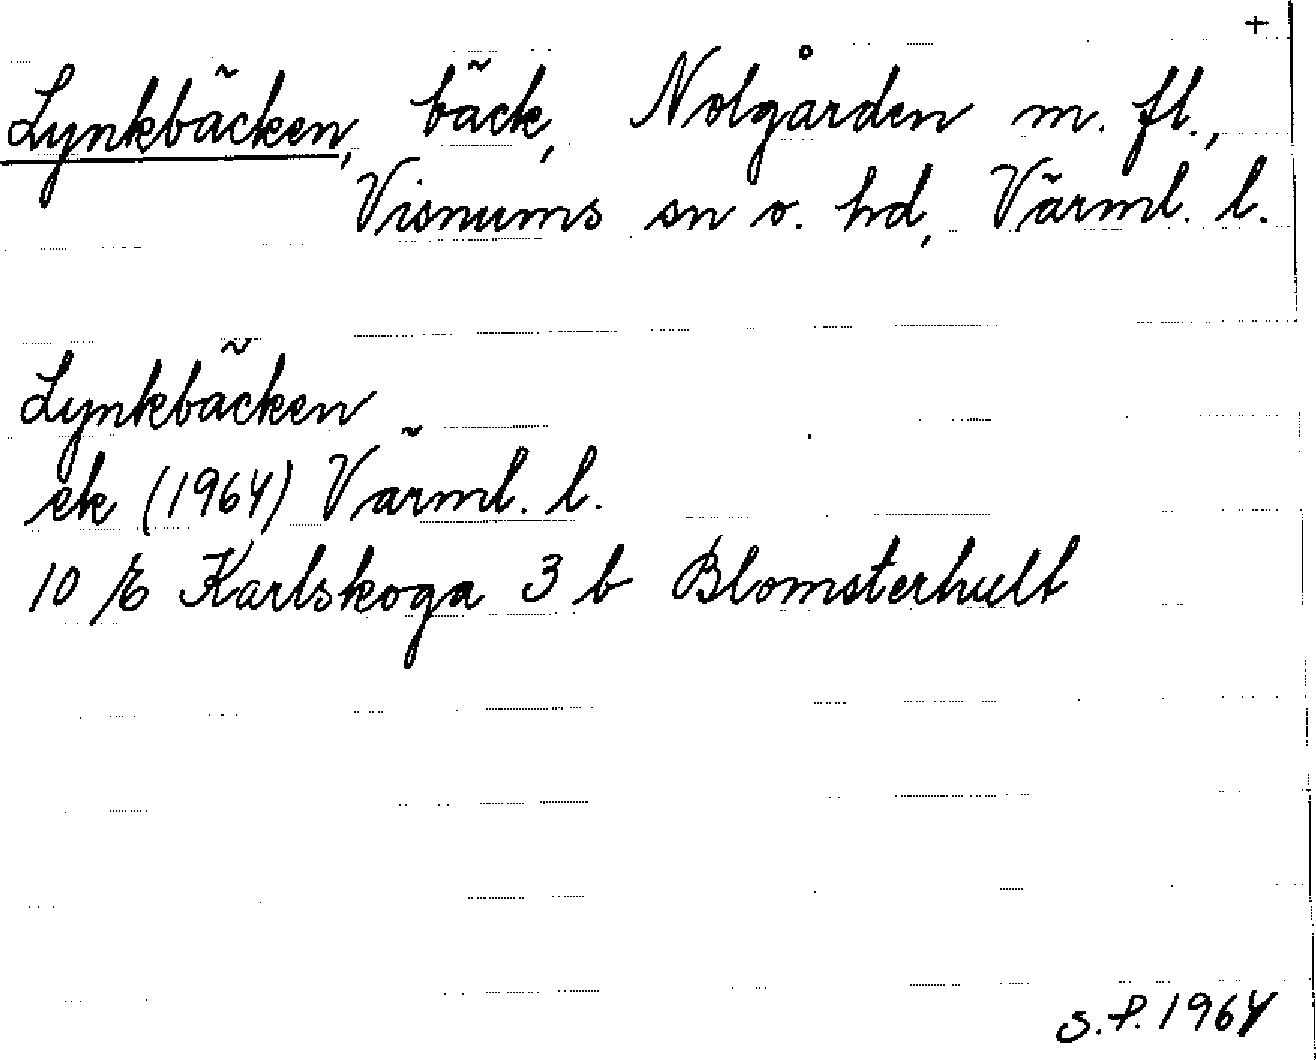 +
Lynkbäcken, bäck, Nolgården m. fl.,
Visnums sn o. hd, Värml. l.
Lynkbäcken
ek (1964) Värml. l.
10 E Karlskoga 3 b Blomsterhult
S.P. 1964